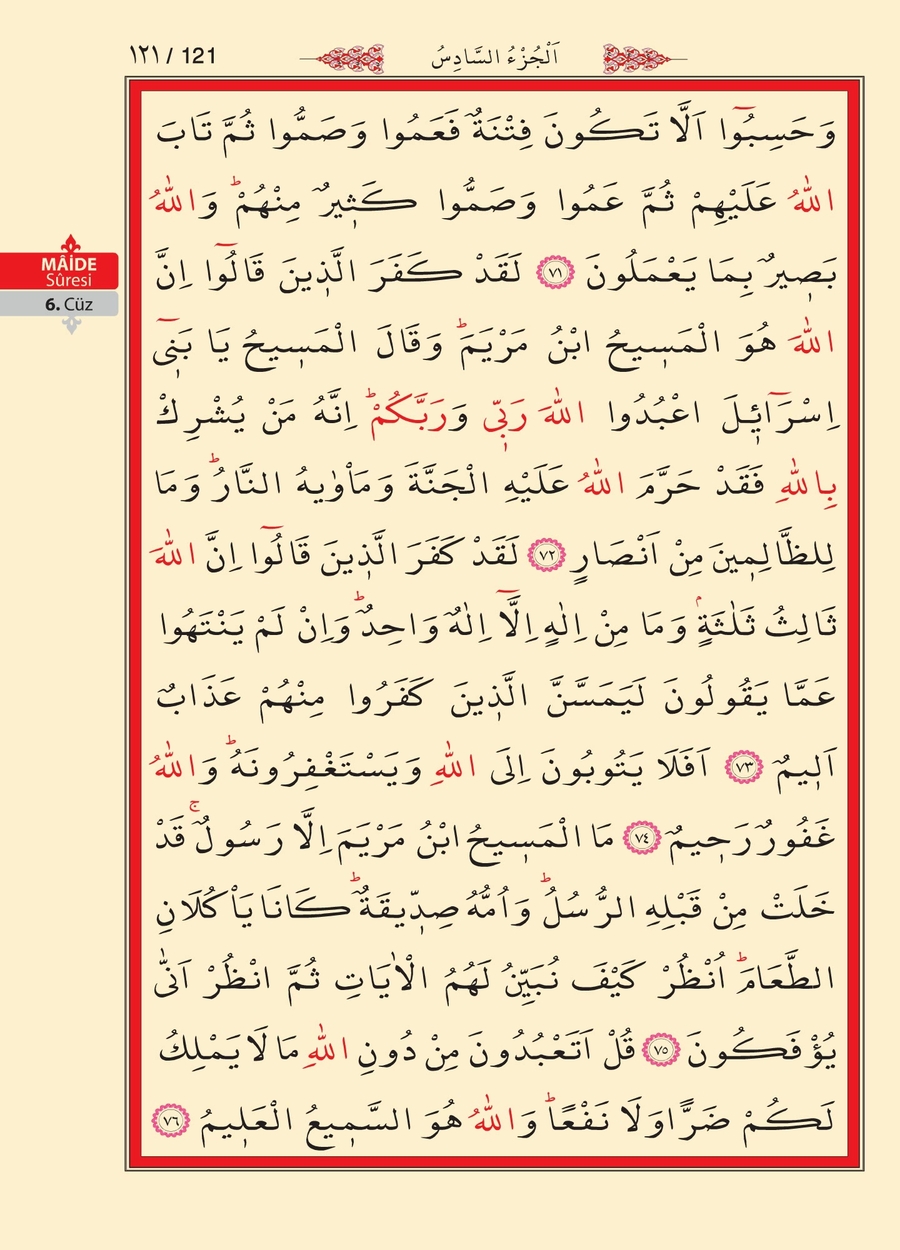 ١٢١ / 121
اَلْجُزْءُ السَّادِسُ
وَحَسِبُٓوا اَلَّا تَكُونَ فِتْنَةٌ فَعَمُوا وَصَمُّوا ثُمَّ تَابَ
اللّٰهُ عَلَيْهِمْ ثُمَّ عَمُوا وَصَمُّوا كَث۪يرٌ مِنْهُمْۜ وَاللّٰهُ
بَص۪يرٌ بِمَا يَعْمَلُونَ ﴿٧١﴾ لَقَدْ كَفَرَ الَّذ۪ينَ قَالُٓوا اِنَّ
MÂİDE
Sûresi
6. Cüz
اللّٰهَ هُوَ الْمَس۪يحُ ابْنُ مَرْيَمَۜ وَقَالَ الْمَس۪يحُ يَا بَن۪ٓي
اِسْرَٓائ۪لَ اعْبُدُوا اللّٰهَ رَبّ۪ي وَرَبَّكُمْۜ اِنَّهُ مَنْ يُشْرِكْ
بِاللّٰهِ فَقَدْ حَرَّمَ اللّٰهُ عَلَيْهِ الْجَنَّةَ وَمَأْوٰيهُ النَّارُۜ وَمَا
لِلظَّالِم۪ينَ مِنْ اَنْصَارٍ ﴿٧٢﴾ لَقَدْ كَفَرَ الَّذ۪ينَ قَالُٓوا اِنَّ اللّٰهَ
ثَالِثُ ثَلٰثَةٍۢ وَمَا مِنْ اِلٰهٍ اِلَّٓا اِلٰهٌ وَاحِدٌۜ وَاِنْ لَمْ يَنْتَهُوا
عَمَّا يَقُولُونَ لَيَمَسَّنَّ الَّذ۪ينَ كَفَرُوا مِنْهُمْ عَذَابٌ
اَل۪يمٌ ﴿٧٣﴾ اَفَلَا يَتُوبُونَ اِلَى اللّٰهِ وَيَسْتَغْفِرُونَهُۜ وَاللّٰهُ
غَفُورٌ رَح۪يمٌ ﴿٧٤﴾ مَا الْمَس۪يحُ ابْنُ مَرْيَمَ اِلَّا رَسُولٌۚ قَدْ
خَلَتْ مِنْ قَبْلِهِ الرُّسُلُۜ وَاُمُّهُ صِدّ۪يقَةٌۜ كَانَا يَأْكُلَانِ
الطَّعَامَۜ اُنْظُرْ كَيْفَ نُبَيِّنُ لَهُمُ الْاٰيَاتِ ثُمَّ انْظُرْ اَنّٰى
يُؤْفَكُونَ ﴿٧٥﴾ قُلْ اَتَعْبُدُونَ مِنْ دُونِ اللّٰهِ مَا لَا يَمْلِكُ
لَكُمْ ضَرًّا وَلَا نَفْعًاۜ وَاللّٰهُ هُوَ السَّم۪يعُ الْعَل۪يمُ ﴿٧٦﴾